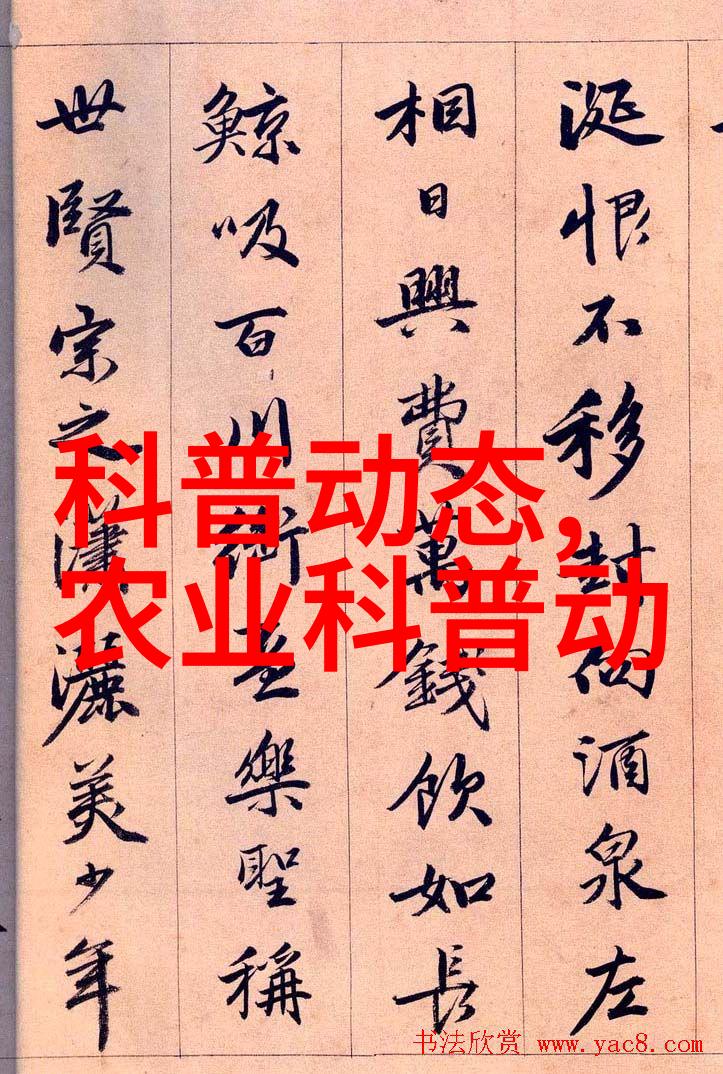 涎恨不移封向酒泉左
相日興費萬錢飲如長
鯨吸百川銜盃樂聖稱
世賢宗之瀟灑美少年
科普动态,
农业科普动
书法欣赏 www.yac8.com